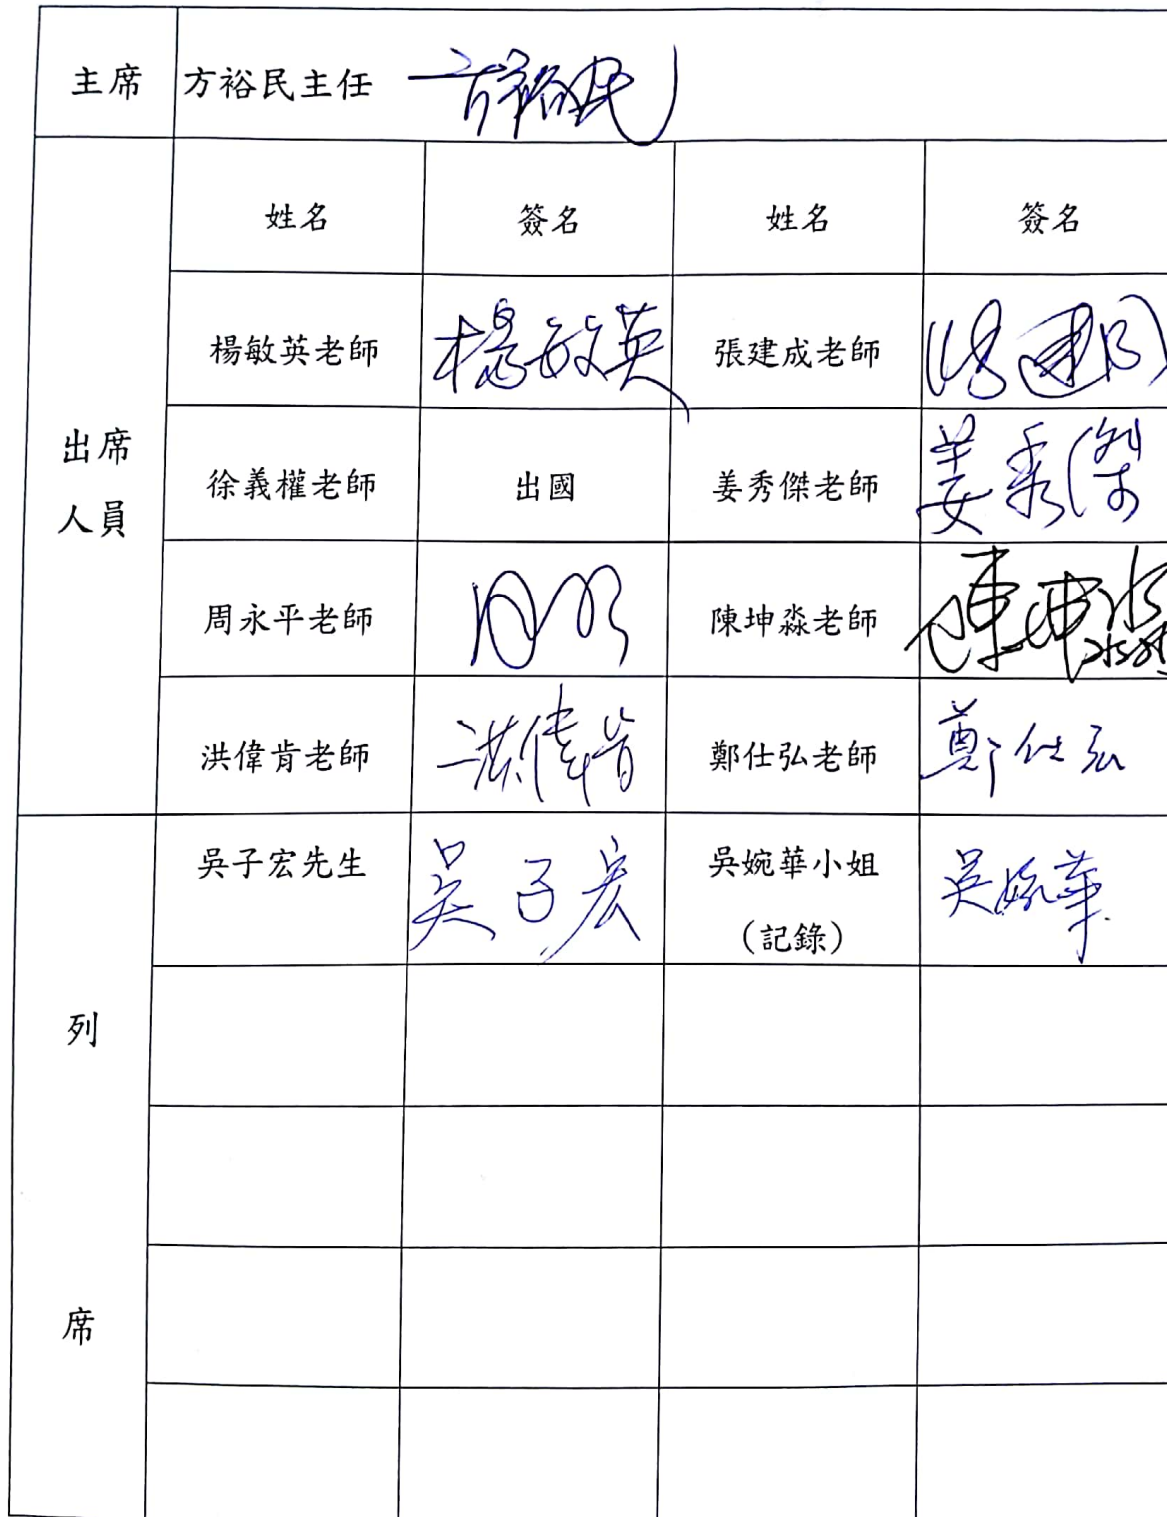 主席 方裕民主任 方裕民
姓名 簽名 姓名 簽名
楊敏英老師 楊敏英 張建成老師
出席
人員
徐義權老師 出國 姜秀傑老師 姜秀傑
周永平老師 陳坤淼老師 陳坤淼
洪偉肯老師 洪偉肯 鄭仕弘老師 鄭仕弘
吳子宏先生 吳子宏 吳婉華小姐 吳婉華
（記錄）
列
席